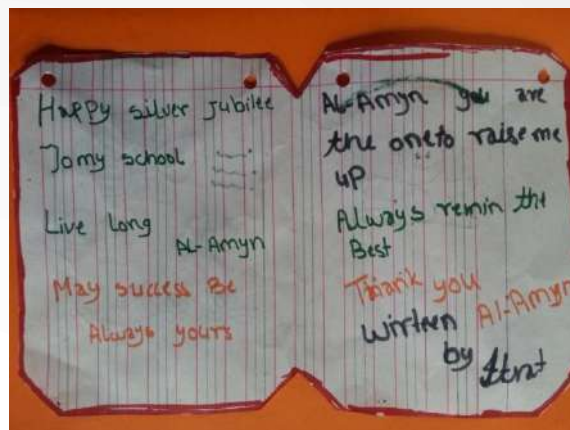 Happy silver Jubilee
To my school
Live Long
AL-Amyn
May success Be
Always yours
AL-Amyn you are
the one to raise me
up
Always remin the
Best
Thank you
Al-Amyn
wirteen
by